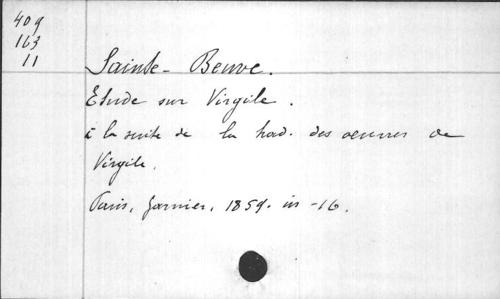 409
163
11
Sainte-Beuve.
Etude sur Virgile.
à la suite de la trad. des oeuvres de
Virgile.
Paris, Garnier, 1859. in-16.